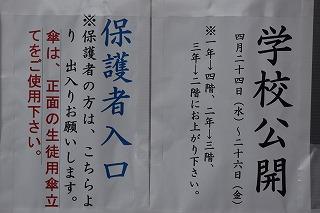 学校公開
四月二十四日（水）～二十六日（金）
※一年→四階、二年→三階、
三年→二階にお上がり下さい。
保護者入口
※保護者の方は、こちらよ
り 出入りお願いします。
傘は、正面の生徒用傘立
てをご使用下さい。